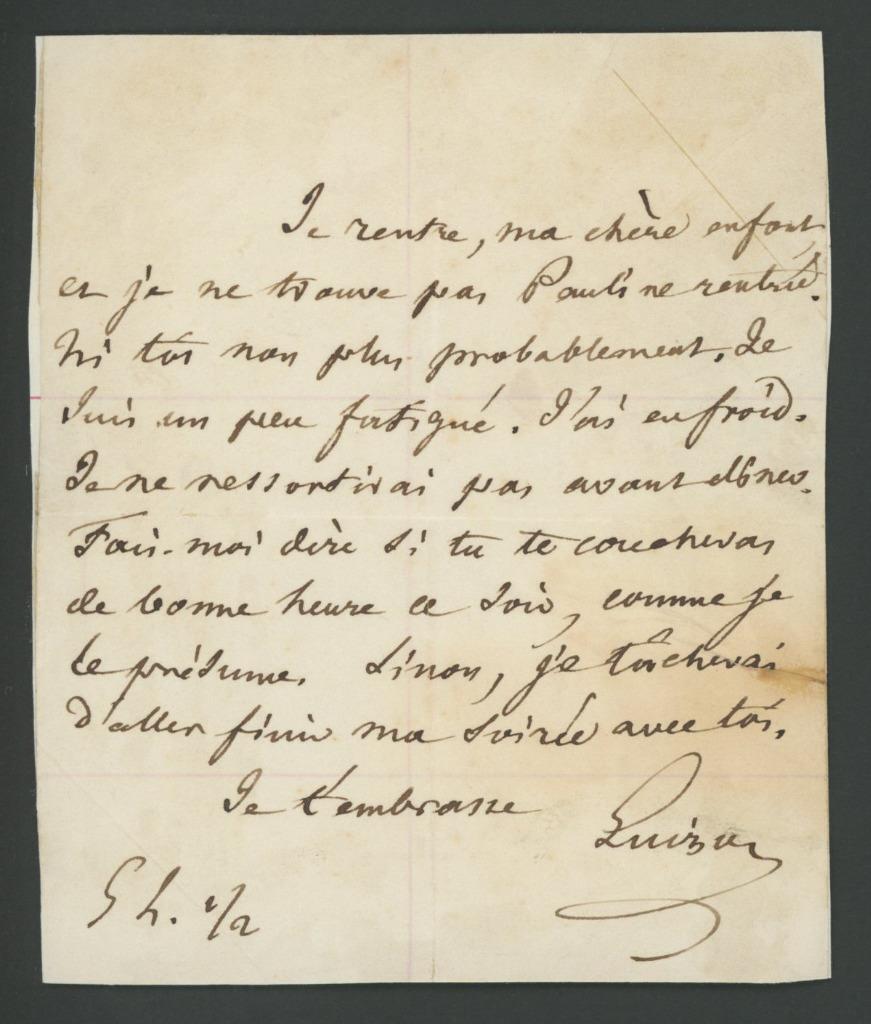 Je rentre, ma chère enfant,
et je ne trouve pas Pauline rentrée.
Ni toi non plus probablement. Je
suis un peu fatigué. J'ai eu froid.
Je ne ressortirai pas avant dîner.
Fais-moi dire si tu te coucheras
de bonne heure ce soir, comme je
le présume. Sinon, je tâcherai
d'aller finir ma soirée avec toi.
Je t'embrasse
Guizot
5 h. 1/2